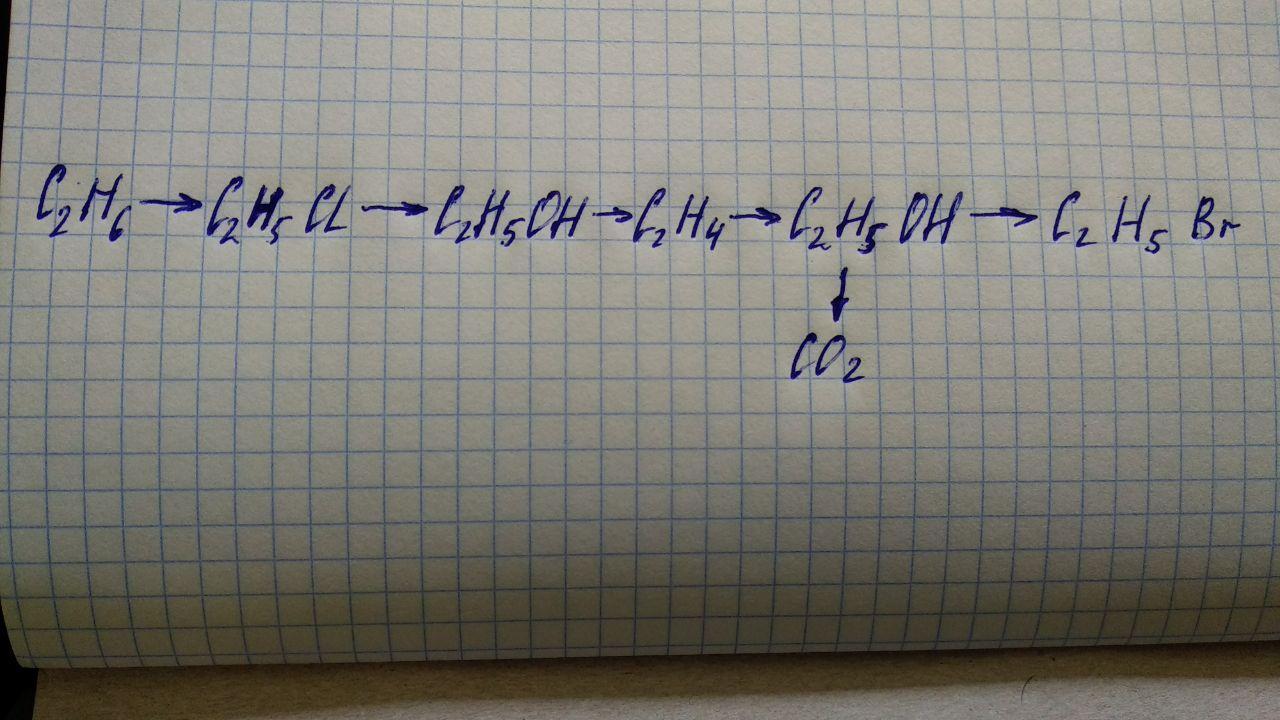 C₂H₆ → C₂H₅Cl → C₂H₅OH → C₂H₄ → C₂H₅OH → C₂H₅Br
↓
CO₂